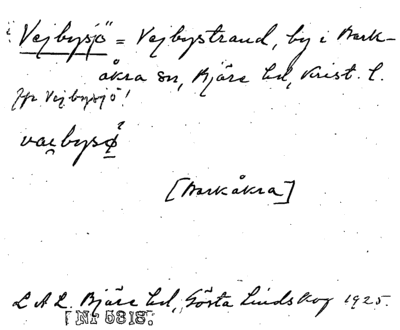 i Vejbysjö" = Vejbystrand, by i Bark-
åkra sn, Bjäre hd, Krist. l.
Jfr Vejbysjö!
[Barkåkra]
L A L. Bjäre hd, Gösta Lindskog 1925.
[Nr 5818.